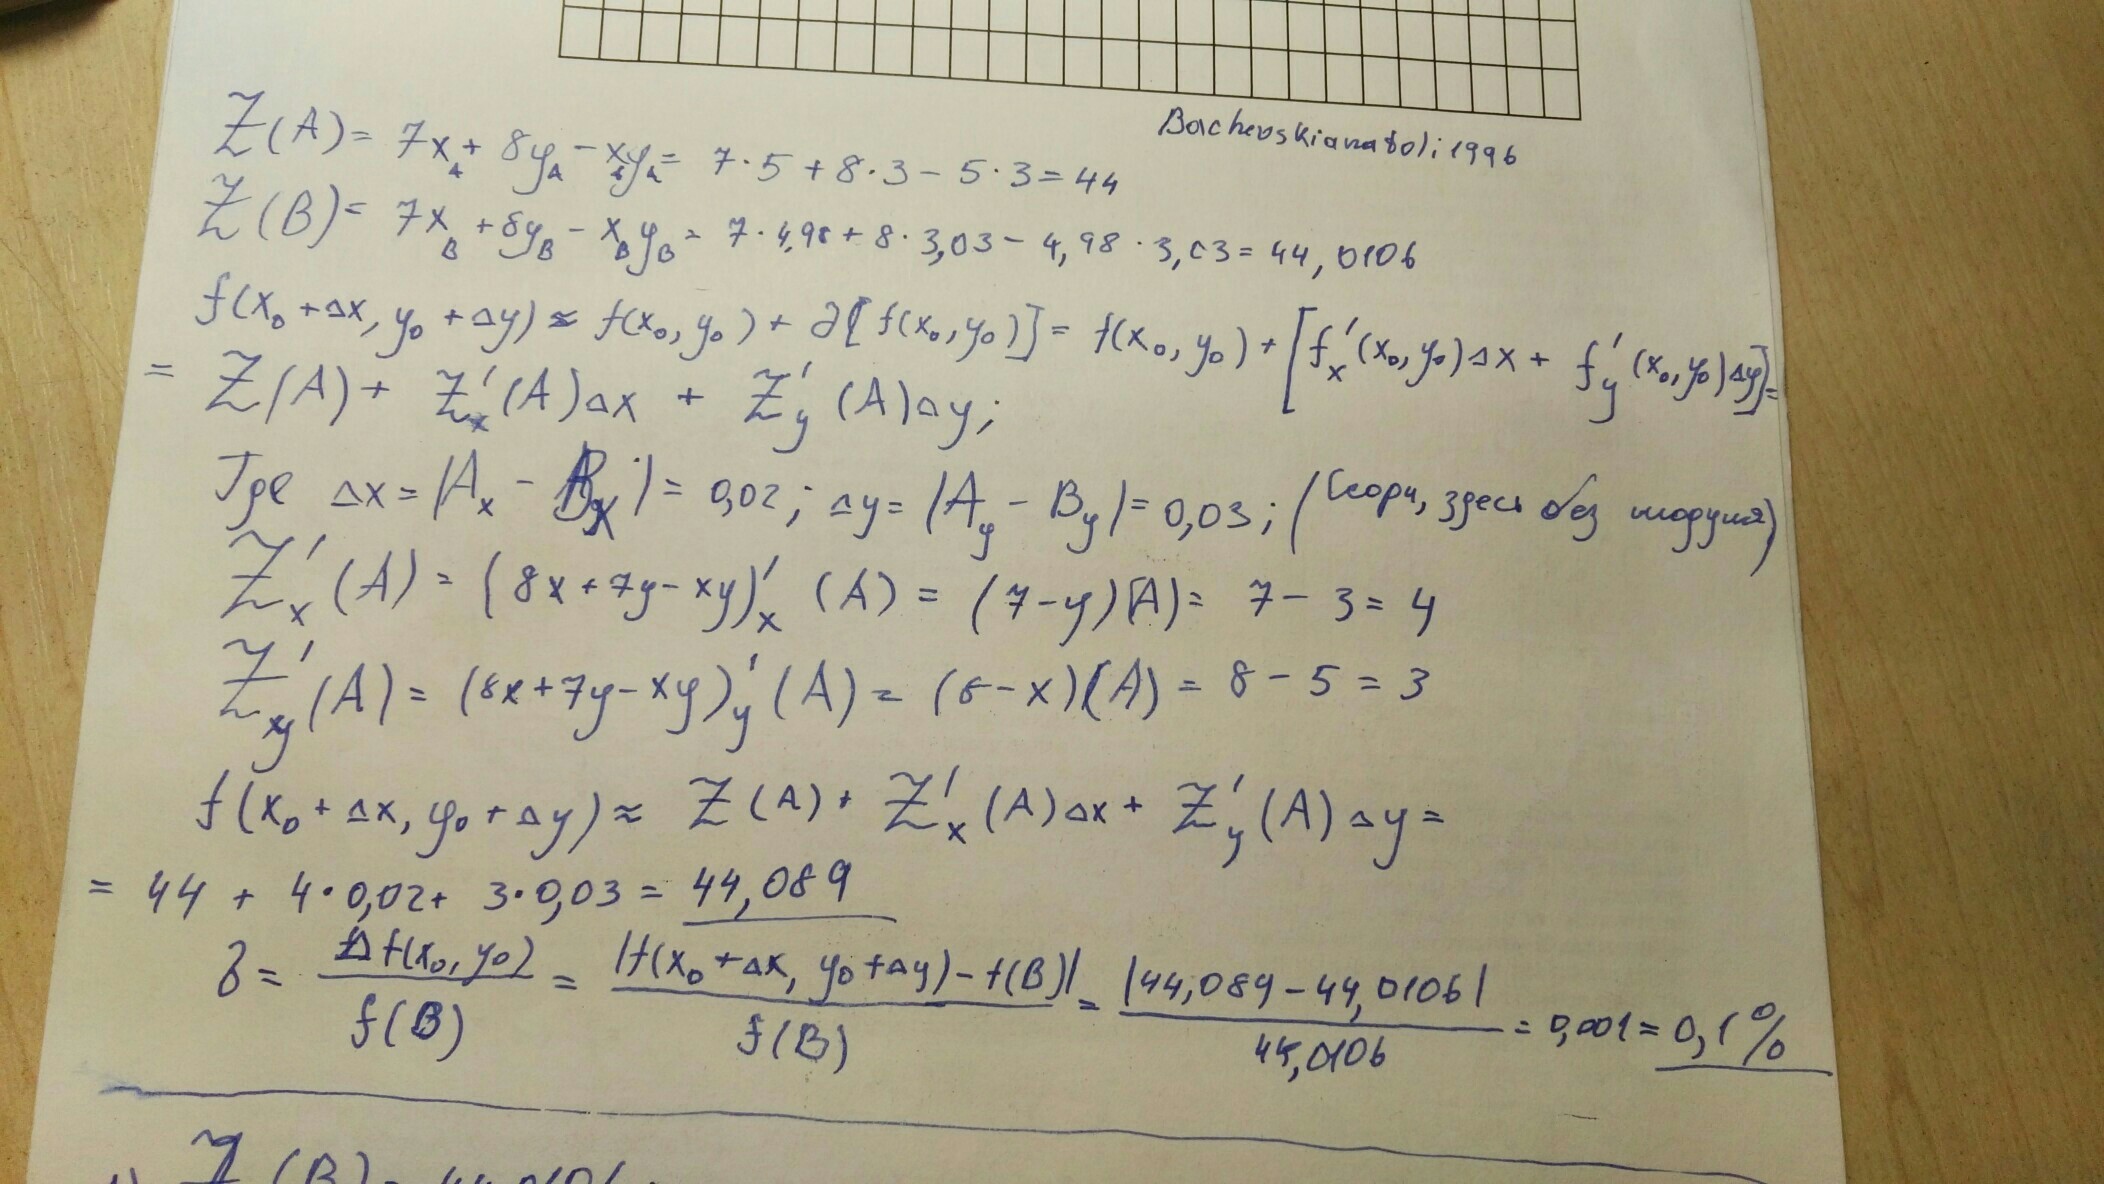 Bachevskianatoli1996
Z(A) = 7x_A + 8y_A - x_A y_A = 7·5 + 8·3 - 5·3 = 44
Z(B) = 7x_B + 8y_B - x_B y_B = 7·4,98 + 8·3,03 - 4,98·3,03 = 44,0106
f(x₀ + Δx, y₀ + Δy) ≈ f(x₀, y₀) + ∂[f(x₀, y₀)] = f(x₀, y₀) + [f'_x(x₀, y₀)Δx + f'_y(x₀, y₀)Δy] =
= Z(A) + Z'_x(A)Δx + Z'_y(A)Δy;
Где Δx = |A_x - B_x| = 0,02; Δy = |A_y - B_y| = 0,03; (Сеори, здесь без модуля)
Z'_x(A) = (8x + 7y - xy)'_x (A) = (7 - y)(A) = 7 - 3 = 4
Z'_y(A) = (8x + 7y - xy)'_y (A) = (8 - x)(A) = 8 - 5 = 3
f(x₀ + Δx, y₀ + Δy) ≈ Z(A) + Z'_x(A)Δx + Z'_y(A)Δy =
= 44 + 4·0,02 + 3·0,03 = 44,089
δ = Δf(x₀, y₀) / f(B) = |f(x₀ + Δx, y₀ + Δy) - f(B)| / f(B) = |44,089 - 44,0106| / 44,0106 = 0,001 = 0,1%
Z(B) = 44,0106